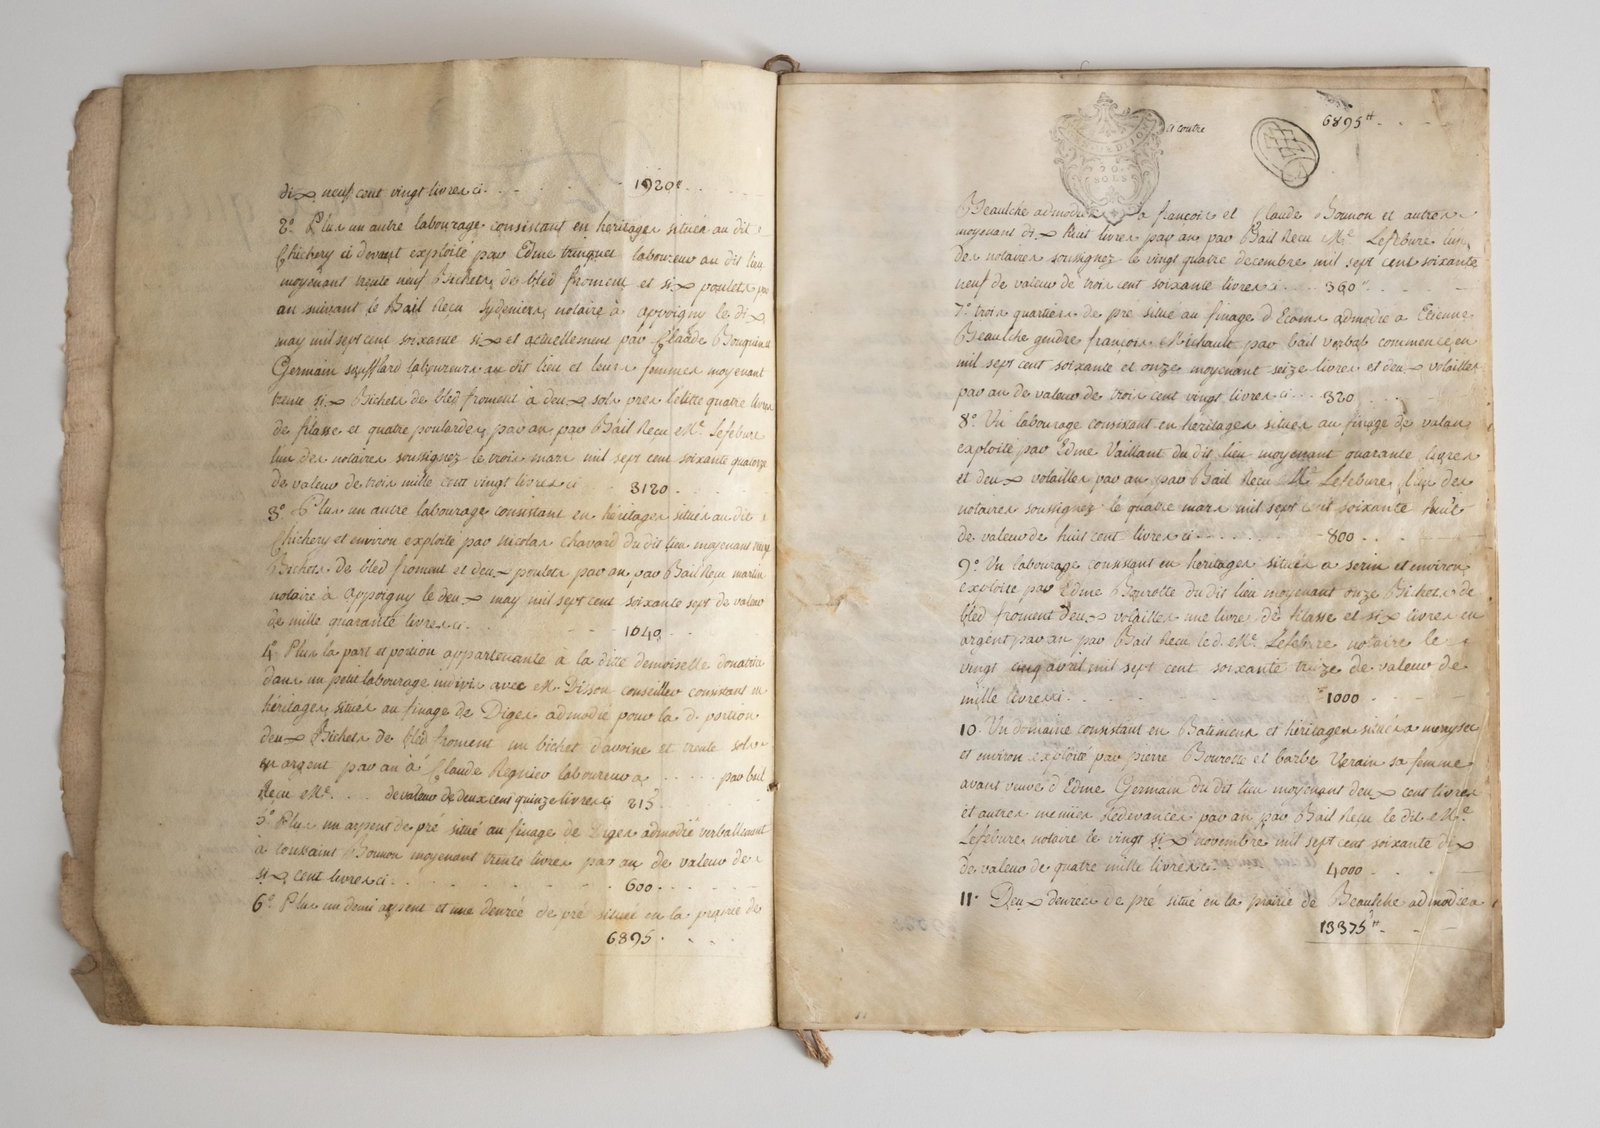 dix neuf cent vingt livres ci. 1920#
2° Plus un autre labourage consistant en héritages situés au dit
Chichery ci devant exploité par Edme trinquet laboureur au dit lieu
moyenant trente neuf Bichets de bled froment et six poulets par
an suivant le Bail Reçu notaire à appoigny le dix
may mil sept cent soixante six et actuellement par Claude Bouquin et
Germain soufflard laboureurs au dit lieu et leurs femmes moyenant
trente six Bichets de bled froment à deux sols pres lelitte quatre livres
de filasse et quatre poulardes par an par Bail Reçu Me. Lefebure
lun des notaires soussignez le trois mars mil sept cent soixante quatorze
de valeur de trois mille cent vingt livres ci 3120
3° Plus un autre labourage consistant en héritages situés au dit
Chichery et environ exploité par nicolas chavard du dit lieu moyenant
Bichets de bled froment et deux poulets par an par Bail Reçu martin
notaire à appoigny le deux may mil sept cent soixante sept de valeur
de mille quarante livres ci. 1040
4° Plus la part et portion appartenante à la ditte demoiselle donatrice
dans un petit labourage indivis avec M. Disson conseiller consistant en
héritages situés au finage de Diges admodié pour la d. portion
deux Bichets de bled froment un bichet d'avoine et trente sols
en argent par an à Claude Regnier laboureur à par bail
Reçu Me. de valeur de deux cent quinze livres ci 215
5° Plus un arpent de pré situé au finage de Diges admodié verballement
à toussaint Bonnon moyenant trente livres par an de valeur de
six cent livres ci. 600
6° Plus un demi arpent et une denrée de pré situés en la prairie de
6895
a contre
6895#
Beaulche admodié à françois et Claude Bonnon et autres
moyenant dix huit livres par an par Bail Reçu Me. Lefebure lun
des notaires soussignez le vingt quatre decembre mil sept cent soixante
neuf de valeur de trois cent soixante livres ci 360#
7° trois quartiers de pré situé au finage d'Ecoms admodié a Etienne
Beaulche gendre françois Michault par bail verbal commencé en
mil sept cent soixante et onze moyenant seize livres et deux volailles
par an de valeur de trois cent vingt livres ci 320
8° Un labourage consistant en héritages situés au finage de valan
exploité par Edme Vaillant du dit lieu moyenant quarante livres
et deux volailles par an par Bail Reçu Me. Lefebure l'un des
notaires soussignez le quatre mars mil sept cent soixante huit
de valeur de huit cent livres ci 800
9° Un labourage consistant en héritages situés a serin et environ
exploité par Edme Bourotte du dit lieu moyenant onze Bichets de
bled froment deux volailles une livre de filasse et six livres en
argent par an par Bail Reçu led. Me. Lefebure notaire le
vingt cinq avril mil sept cent soixante treize de valeur de
mille livres ci. 1000
10. Un domaine consistant en Batimens et héritages situés a monysec
et environ exploité par pierre Bourotte et barbe Verain sa femme
avant veuve d'Edme Germain du dit lieu moyenant deux cent livres
et autres menües Redevances par an par Bail Reçu le dit Me.
Lefebure notaire le vingt six novembre mil sept cent soixante dix
de valeur de quatre mille livres ci. 4000
11. Deux denrées de pré situé en la prairie de Beaulche admodiés a
13375#